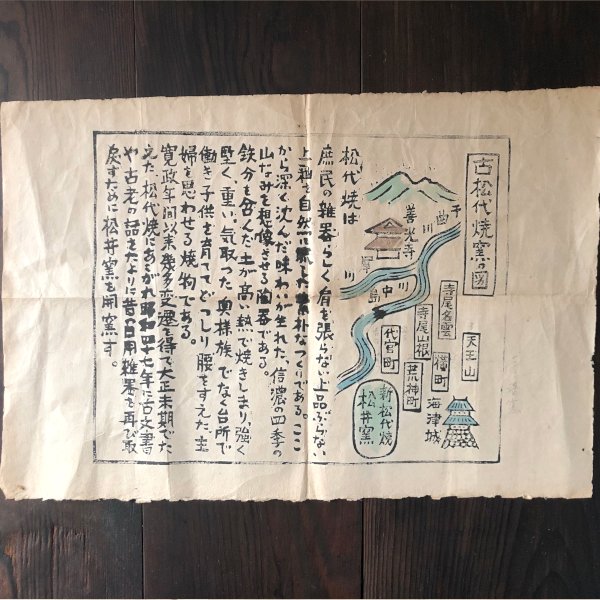 古松代焼窯の図
千曲川
善光寺
犀川
川中島
寺尾名雲
寺尾山根
代官町
荒神町
横町
天王山
海津城
新松代焼
松井窯
松代焼は
庶民の雑器らしく肩を張らない上品ぶらない
上釉を自然に流した素朴なつくりである。ここ
から深く沈んだ味わいが生れた、信濃の四季の
山なみを想像させる陶器である。
鉄分を含んだ土が高い熱で焼きしまり、強く
堅く、重い。気取った奥様族でなく台所で
働き子供を育ててどっしり腰をすえた主
婦を思わせる焼物である。
寛政年間以来幾多変遷を得て大正末期でた
えた、松代焼にあこがれ昭和四十七年に古文書
や古老の話をたよりに昔の日用雑器を再び取
戻すために松井窯を開窯す。